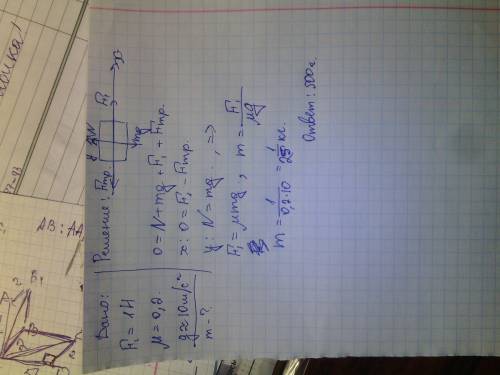 Дано:
F₁ = 1Н
μ = 0,2.
g≈10м/с²
m - ?
Решение:
Fтр.
y
N
F₁
x
mg
0 = N + mg + F₁ + Fтр.
x: 0 = F₁ - Fтр.
y: N = mg. , =>
F₁ = μmg , m = F₁/μg
m = 1/0,2·10 = 1/2 кг.
Ответ: 500г.
AB : AA₁
B₁